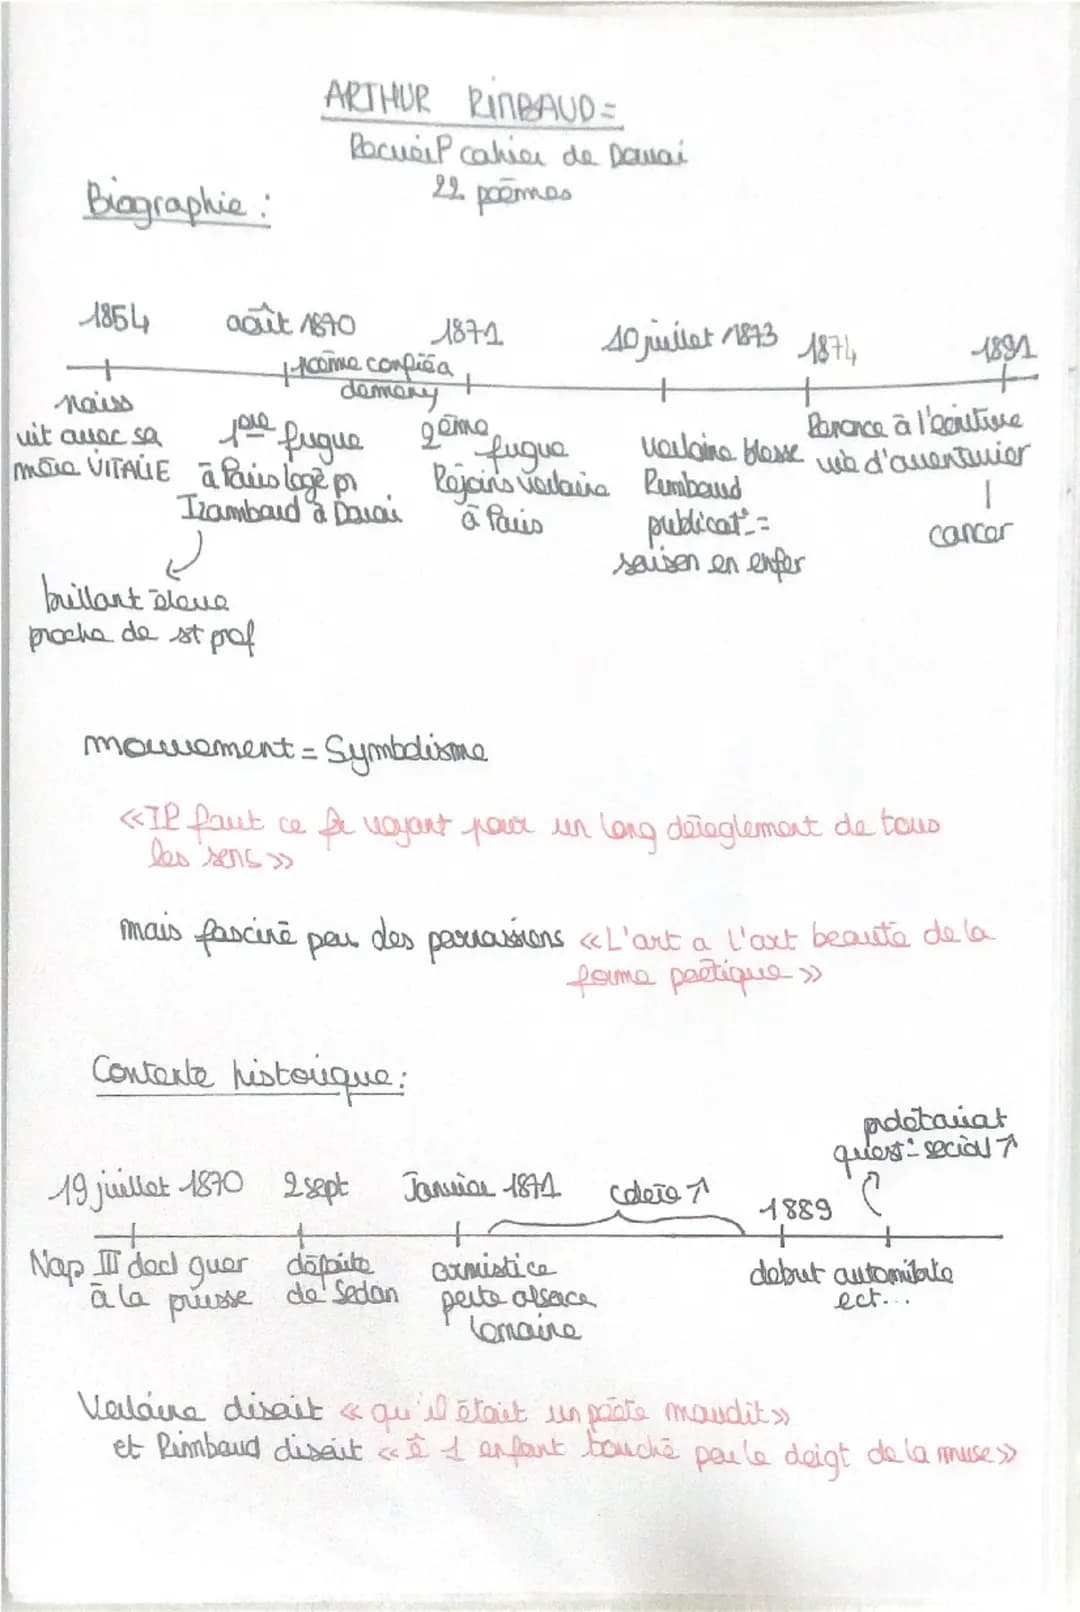 ARTHUR RIMBAUD =
Recueil cahier de Douai
22 poèmes
Biographie :
1854
août 1870
1871
10 juillet 1873
1874
1891
poème confié à
demeny
naiss
vit avec sa
mère VITALIE
1ère fugue
à Paris logé pr
Izambard à Douai
brillant élève
proche de st prof
2ème fugue
Rejoins verlaine
à Paris
verlaine blesse
Rimbaud
publicat° =
saison en enfer
Renonce à l'écriture
vie d'aventurier
cancer
mouvement = Symbolisme
«Il faut ce fr voyant pour un long dérèglement de tous
les sens»
mais fasciné par des parnassiens «L'art a l'art beauté de la
forme poétique»
Contexte historique :
19 juillet 1870
2 sept
Janvier 1871
colère ↗
1889
prolétariat
quest° social ↗
Nap III decl guer
à la prusse
défaite
de Sedan
armistice
perte alsace
Lorraine
debut automibile
ect...
Verlaine disait « qu'il était un poète maudit»
et Rimbaud disait «ê 1 enfant touché par le doigt de la muse»